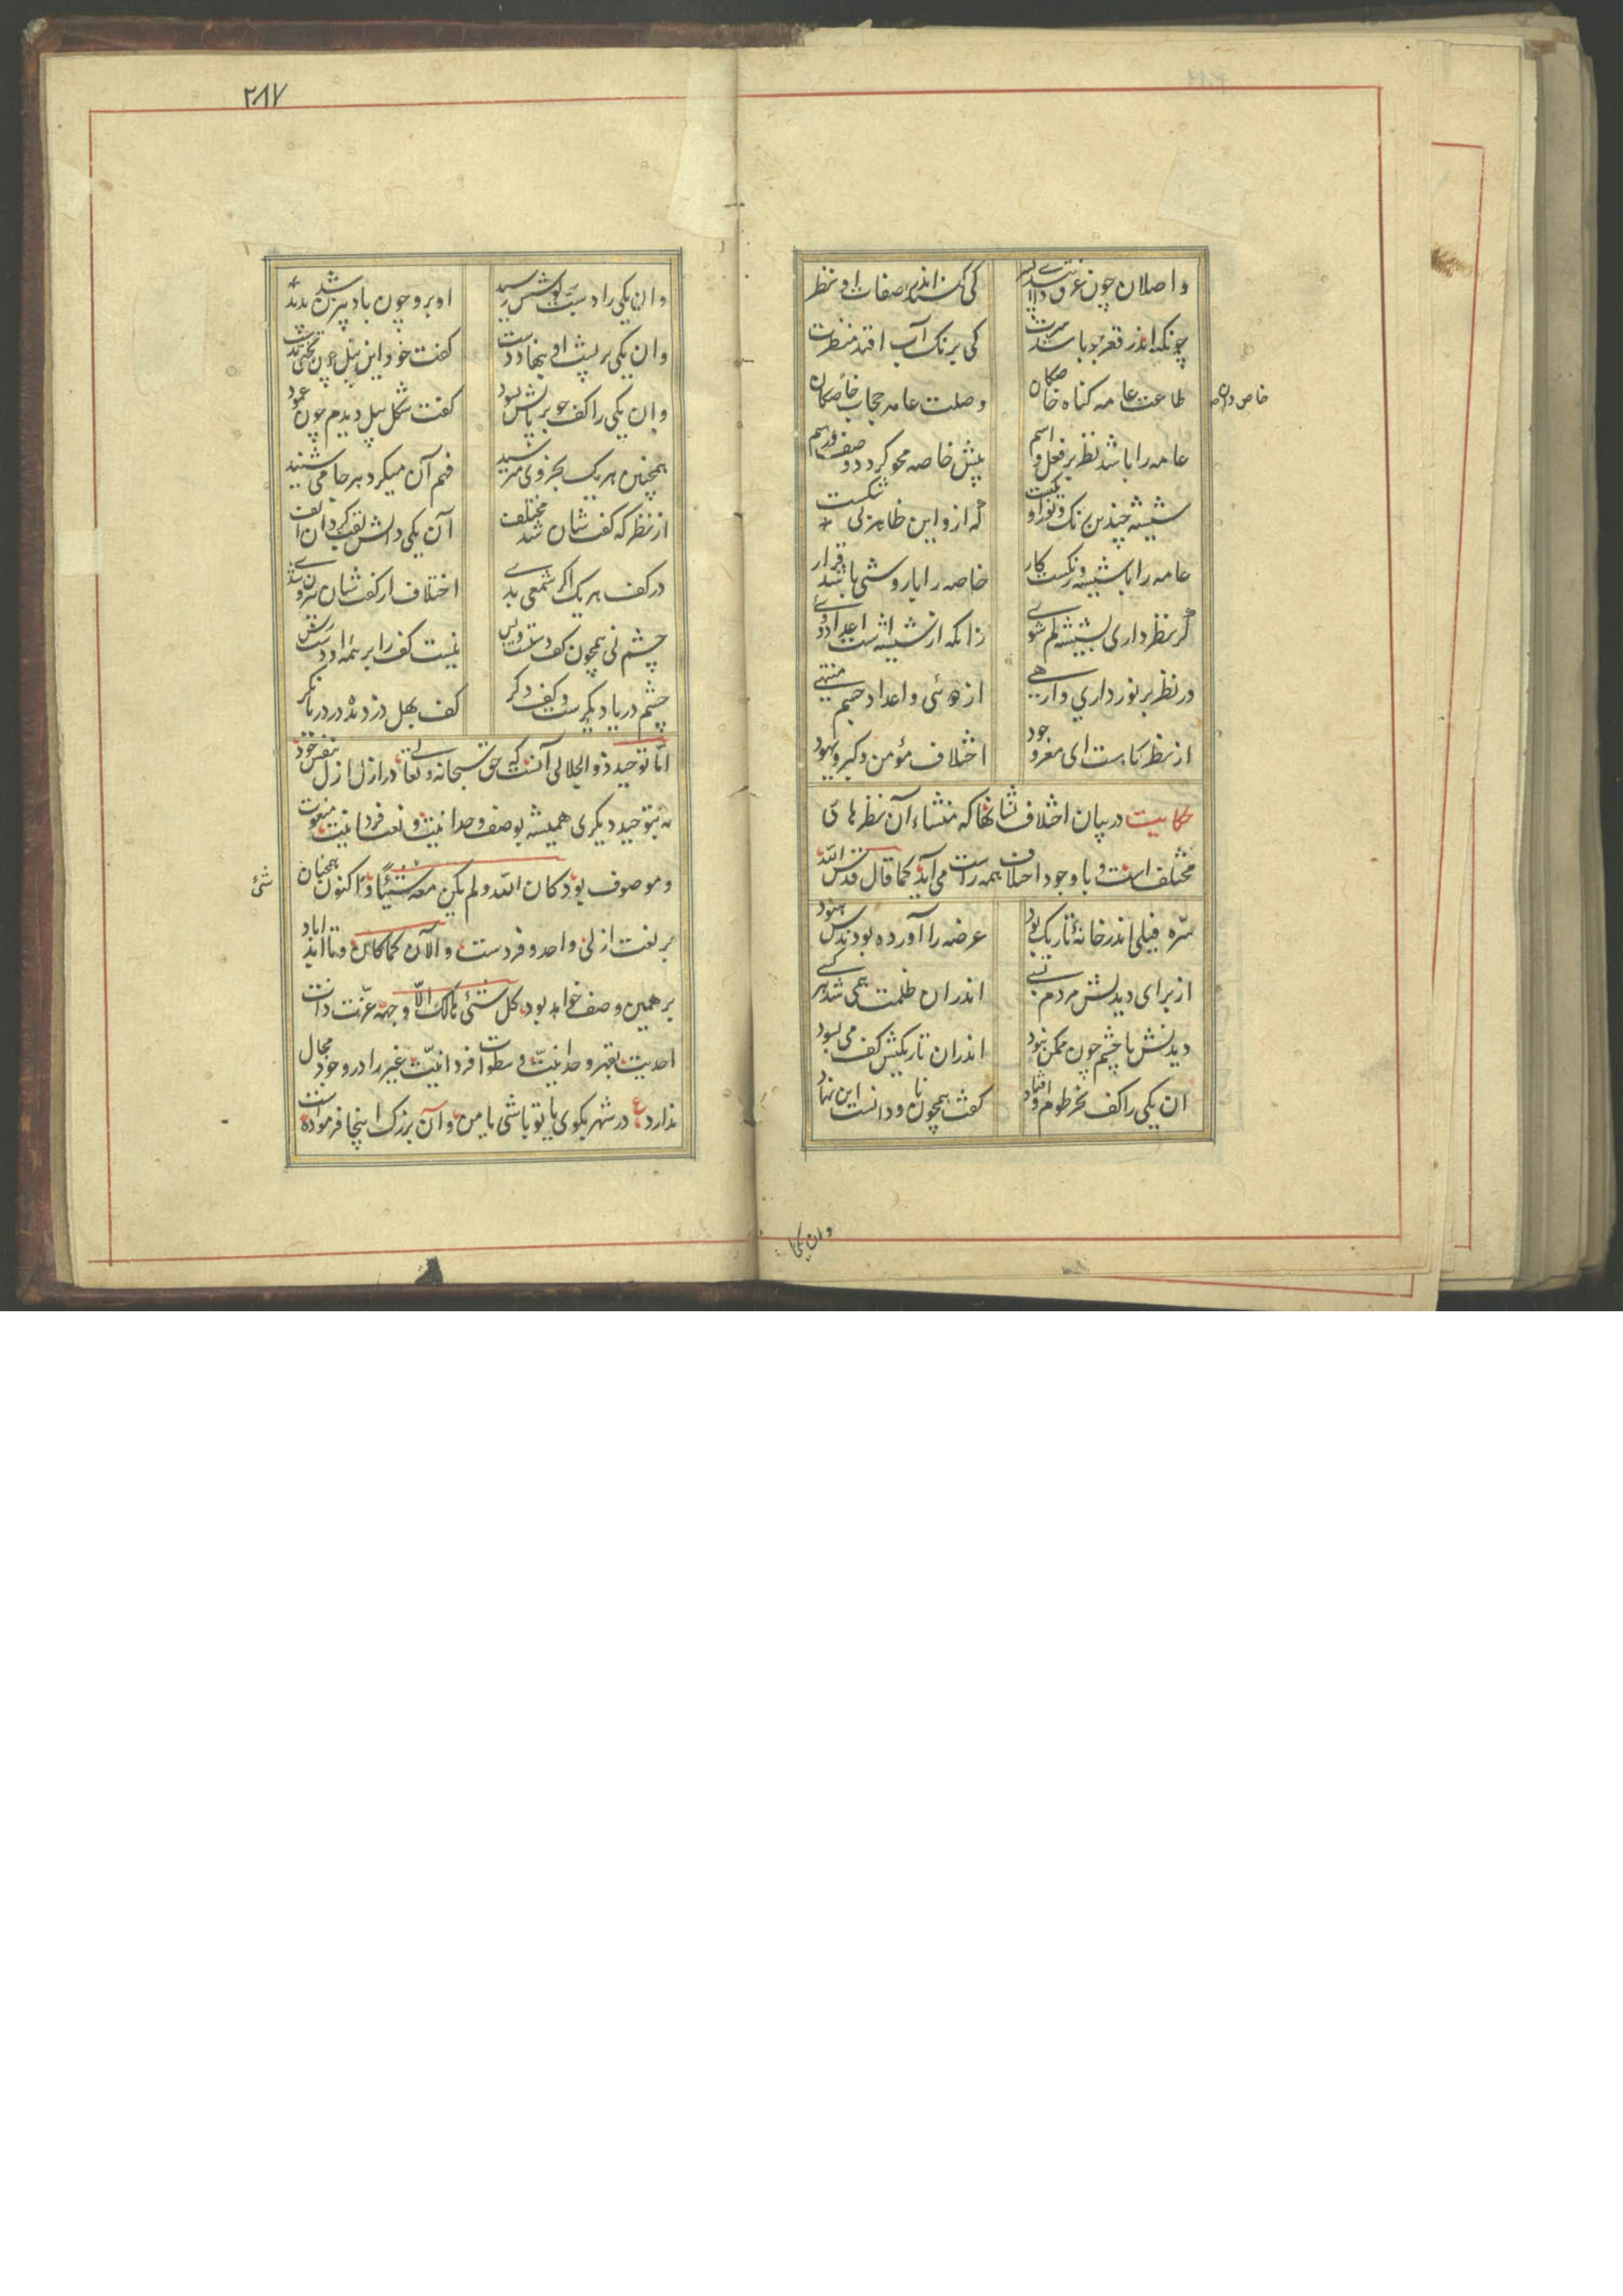 واصلان چون غرق ذاتند ای پسر
کی کنند اندر صفات او نظر
چونکه اندر قعر جو باشد سرت
کی برنک آب افتد منظرت
طاعت عامه کناه خاصکان
وصلت عامه حجاب خاصکان
عامه را باشد نظر بر فعل و اسم
پیش خاصه محو کردد وصف و رسم
عامه را با شیشه و رنکست کار
خاصه را با روشنی باشد قرار
گر نظر داری بشیشه کم شوی
زانکه از شیشه است اعداد دوی
ور نظر بر نور داری وارهی
از دوئی و اعداد جسم منتهی
از نظر کاهست ای مغز وجود
اختلاف مؤمن و کبر و یهود
حکایت در بیان اختلاف نشانها که منشاء آن نظرهای
مختلف است و با وجود اختلاف همه راست می آید کما قال قدس الله سره
فیلی اندر خانهٔ تاریک بود
عرضه را آورده بودندش هنود
از برای دیدنش مردم بسی
اندران ظلمت همی شد هر کسی
دیدنش با چشم چون ممکن نبود
اندران تاریکیش کف می بسود
ان یکی را کف بخرطوم اوفتاد
کفت همچون ناودانست این نهاد
وان یکی
۲۸۷
وان یکی را دست بر کوشش رسید
او برو چون بادبیزن شد پدید
وان یکی بر پشت او بنهاد دست
کفت خود این پیل چون تختی بدست
وان یکی را کف چو بر پایش بسود
کفت شکل پیل دیدم چون عمود
همچنین هر یک بجزوی میرسید
فهم آن میکرد هر جا می شنید
از نظر که کفت شان شد مختلف
آن یکی دالش لقب کرد آن الف
در کف هر یک اکر شمعی بدی
اختلاف از کفت شان بیرون شدی
چشم حس همچون کف دستست و بس
نیست کف را بر همه او دست رس
چشم دریا دیکرست و کف دکر
کف بهل وز دیده در دریا نکر
امّا توحید ذو الجلالی آنست که حق سبحانه و تعالی در ازل ازل بنفس خود
نه بتوحید دیکری همیشه بوصف وحدانیت و نعت فردانیت منعوت
و موصوف بود کان الله و لم یکن معه شیئًا و اکنون همچنان
شئ
بر نعت ازلی واحد و فردست و الآن کما کان و تا ابد اباد
بر همین وصف خواهد بود کل شئ هالک الّا وجهه عزت ذات
احدیت بقهر وحدانیّت و سطوت فردانیّت غیر را در وجود مجال
ندارد ع در شهر بکوی یا تو باشی یا من و آن بزرک اینجا فرموده است